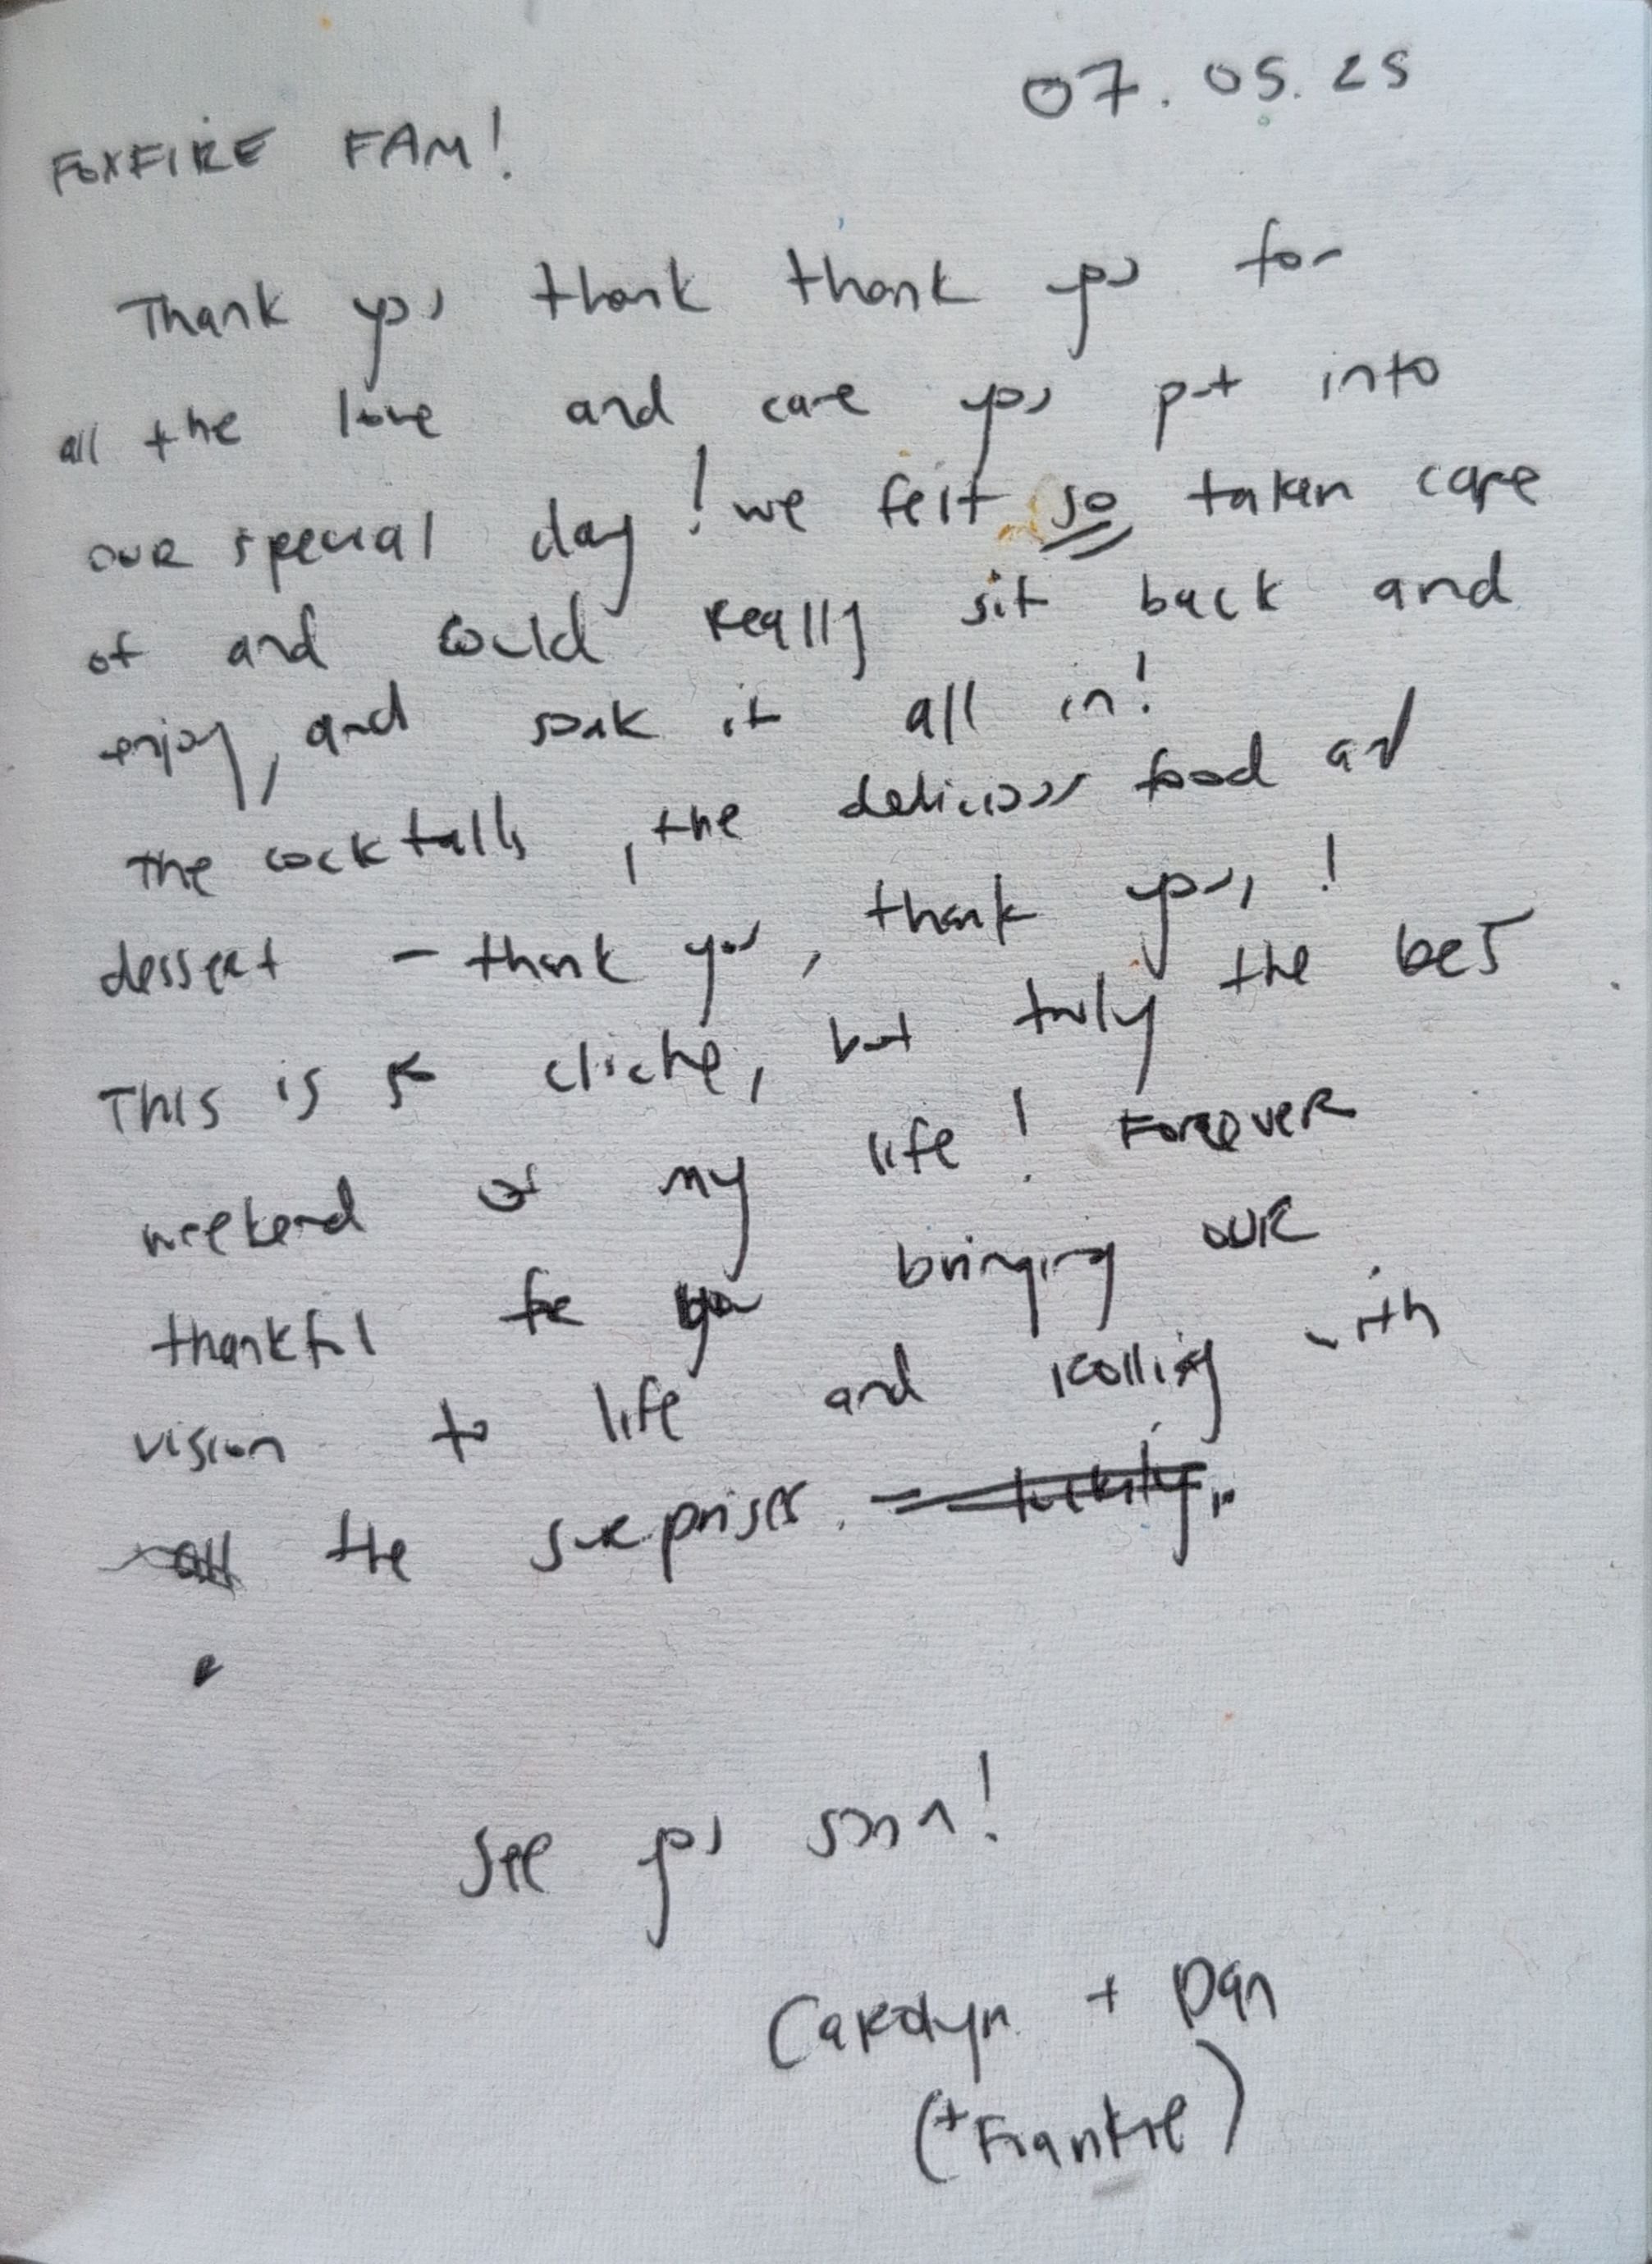 07.05.25
FOXFIRE FAM!
Thank you thank thank you for
all the love and care you put into
our special day! we felt so taken care
of and could really sit back and
enjoy, and soak it all in!
The cocktails, the delicious food and
dessert - thank you, thank you,!
This is so cliche, but truly the best
weekend of my life! Forever
thankful for you bringing our
vision to life and rolling with
all the surprises. luckily..
See you soon!
Carolyn + Dan
(+Frankie)